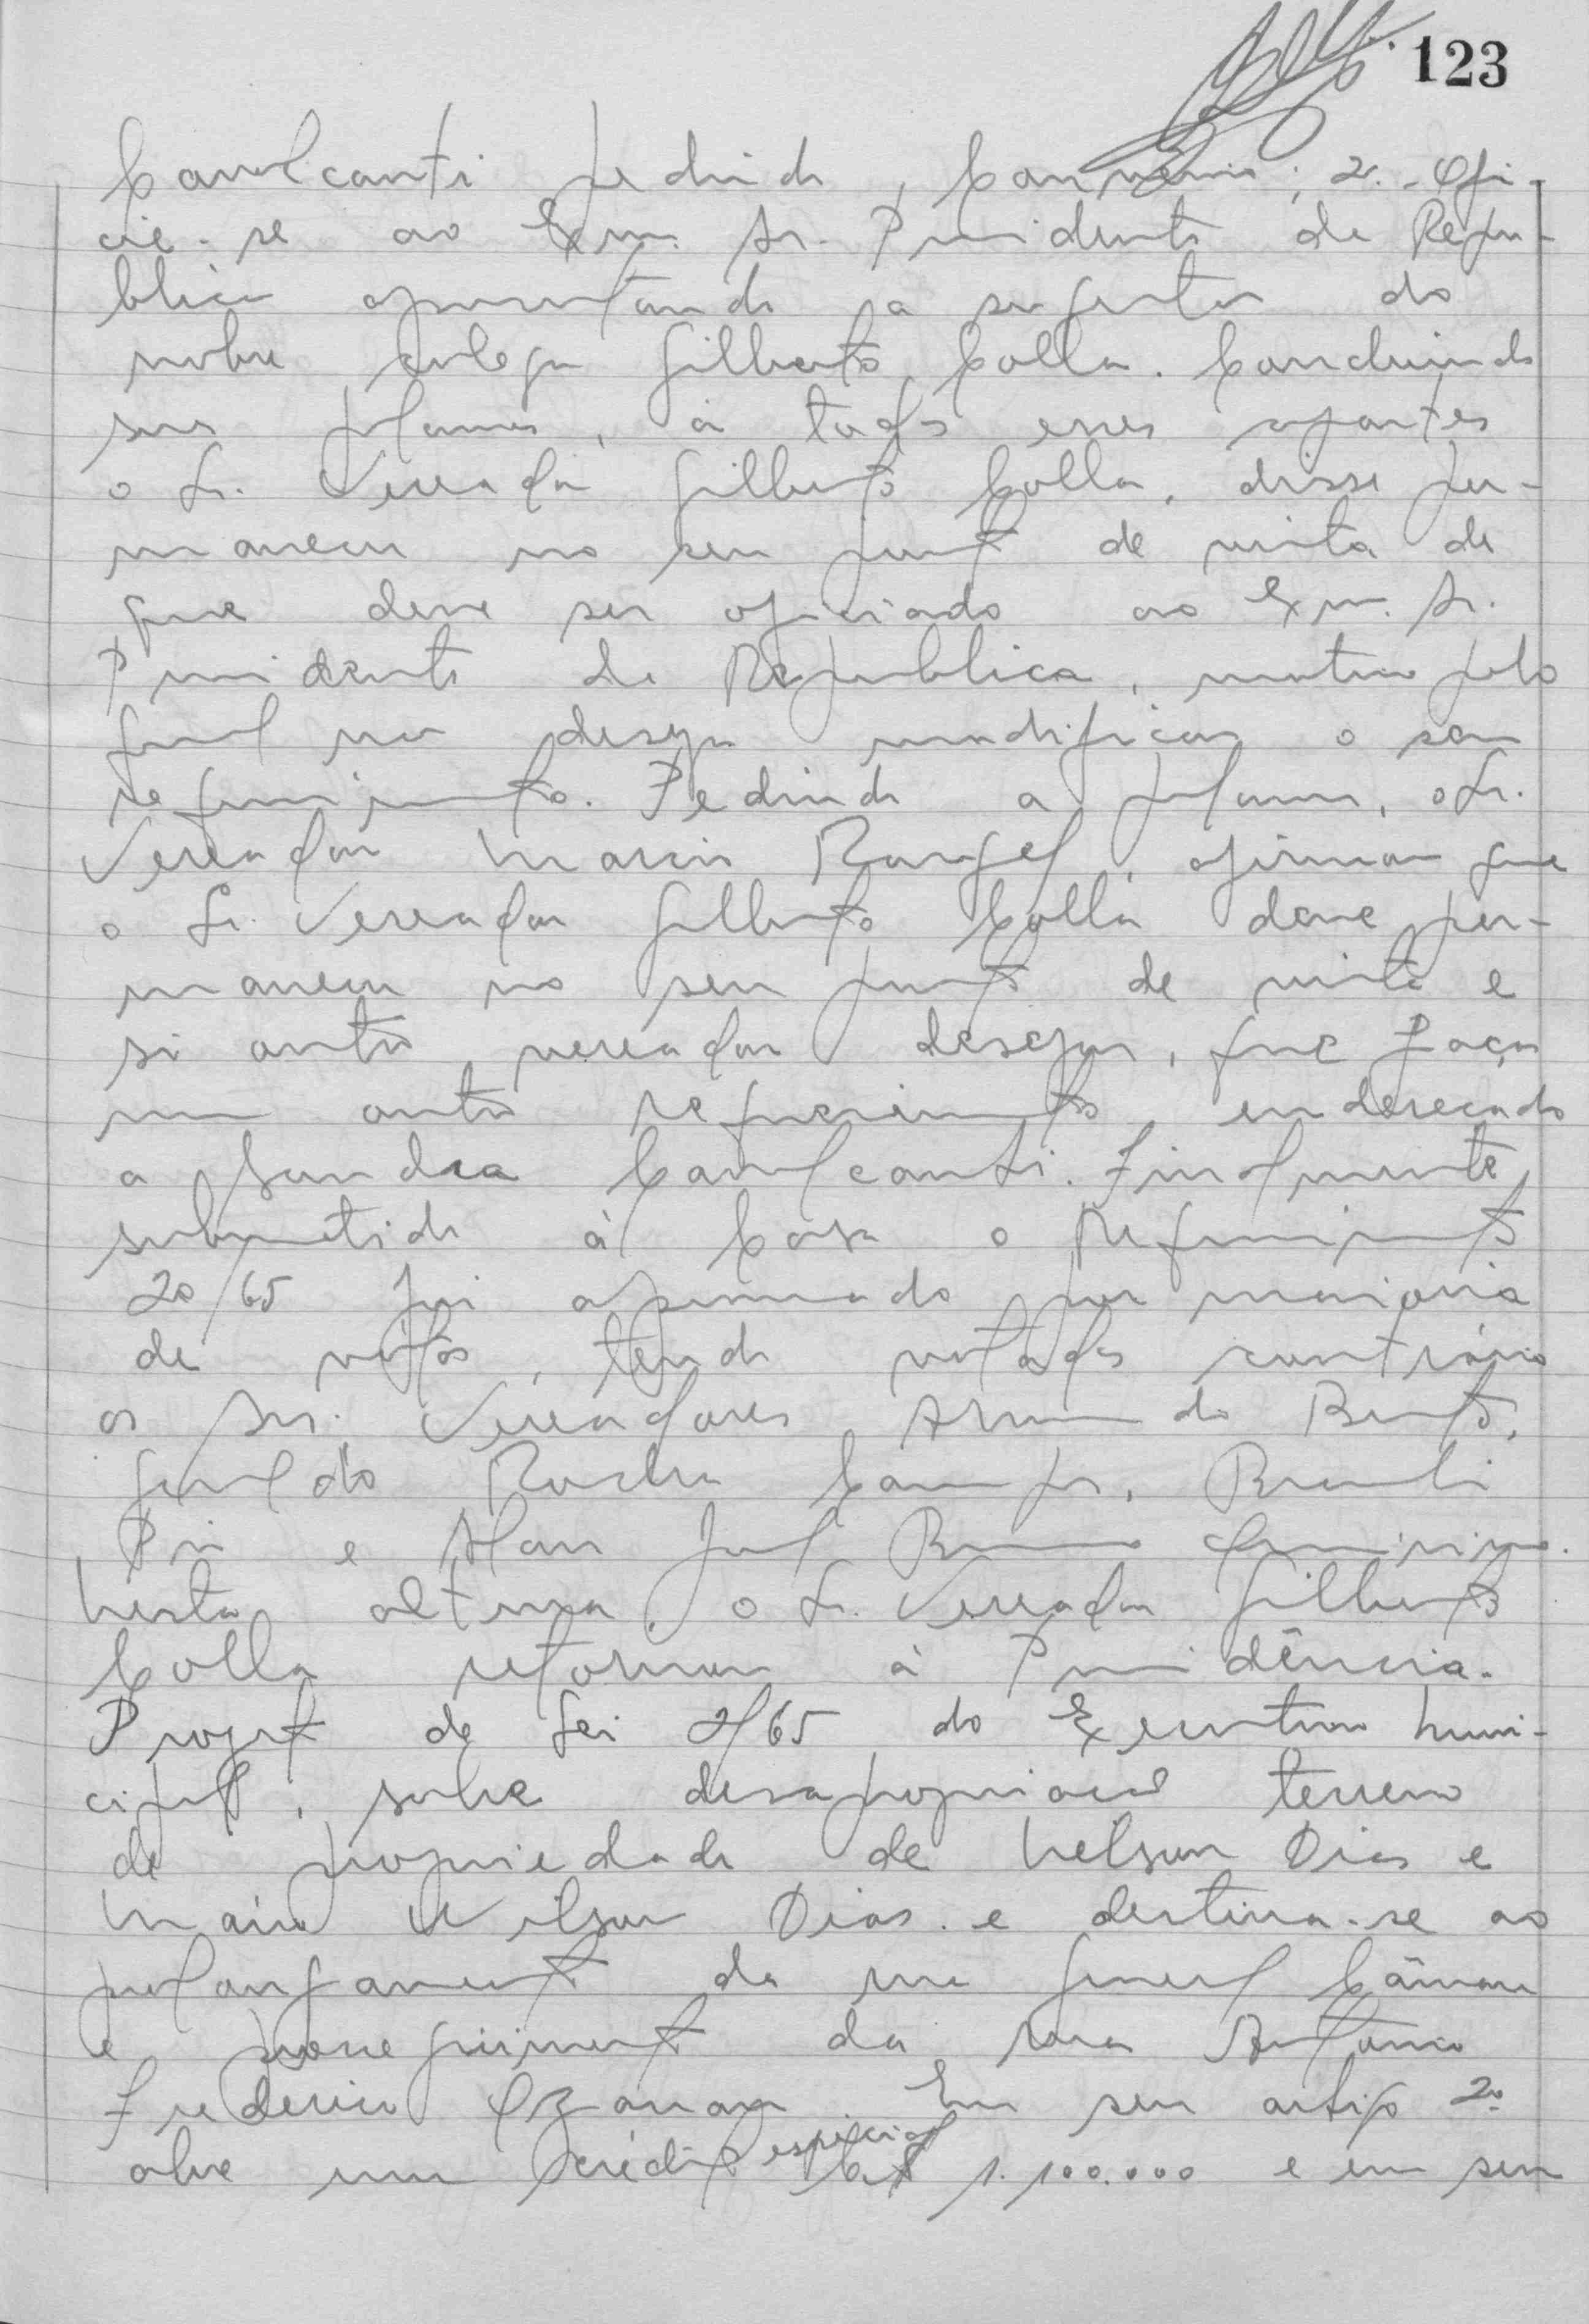 123
Cavalcanti pedindo, Convenio; 2º - Ofi-
cie-se ao Exm. Sr. Presidente da Repu-
blica apresentando a sugestão do
nobre colega Gilberto Colla. Concluindo
sua palavra, à todos esses apartes
o Sr. Vereador Gilberto Colla, disse per-
manecer no seu ponto de vista de
que deve ser oficiado ao Exm. Sr.
Presidente da Republica, motivo pelo
qual não deseja modificar o seu
requerimento. Pedindo a palavra, o Sr.
Vereador Marcio Rangel, afirmou que
o Sr. Vereador Gilberto Colla deve per-
manecer no seu ponto de vista e
si outro vereador desejar, que faça
um outro requerimento, endereçado
a Sandra Cavalcanti. Finalmente
submetido à Casa o Requerimento
20/65 foi aprovado por maioria
de votos, tendo votados contrário
os Srs. Vereadores Armando Bento,
Geraldo Rocha Campos,
e
Nesta altura, o Sr. Vereador Gilberto
Colla retornou à Presidência.
Projeto de Lei 2/65, do Executivo Muni-
cipal, sobre desapropriação terreno
de propriedade de Nelson Dias e
Mário Wilson Dias. e destina-se ao
prolongamento da rua General Câmara
e prosseguimento da rua Antonio
Frederico Ozanan. Em seu artigo 2º
abre um crédito especial Cr$ 1.100.000 e em seu